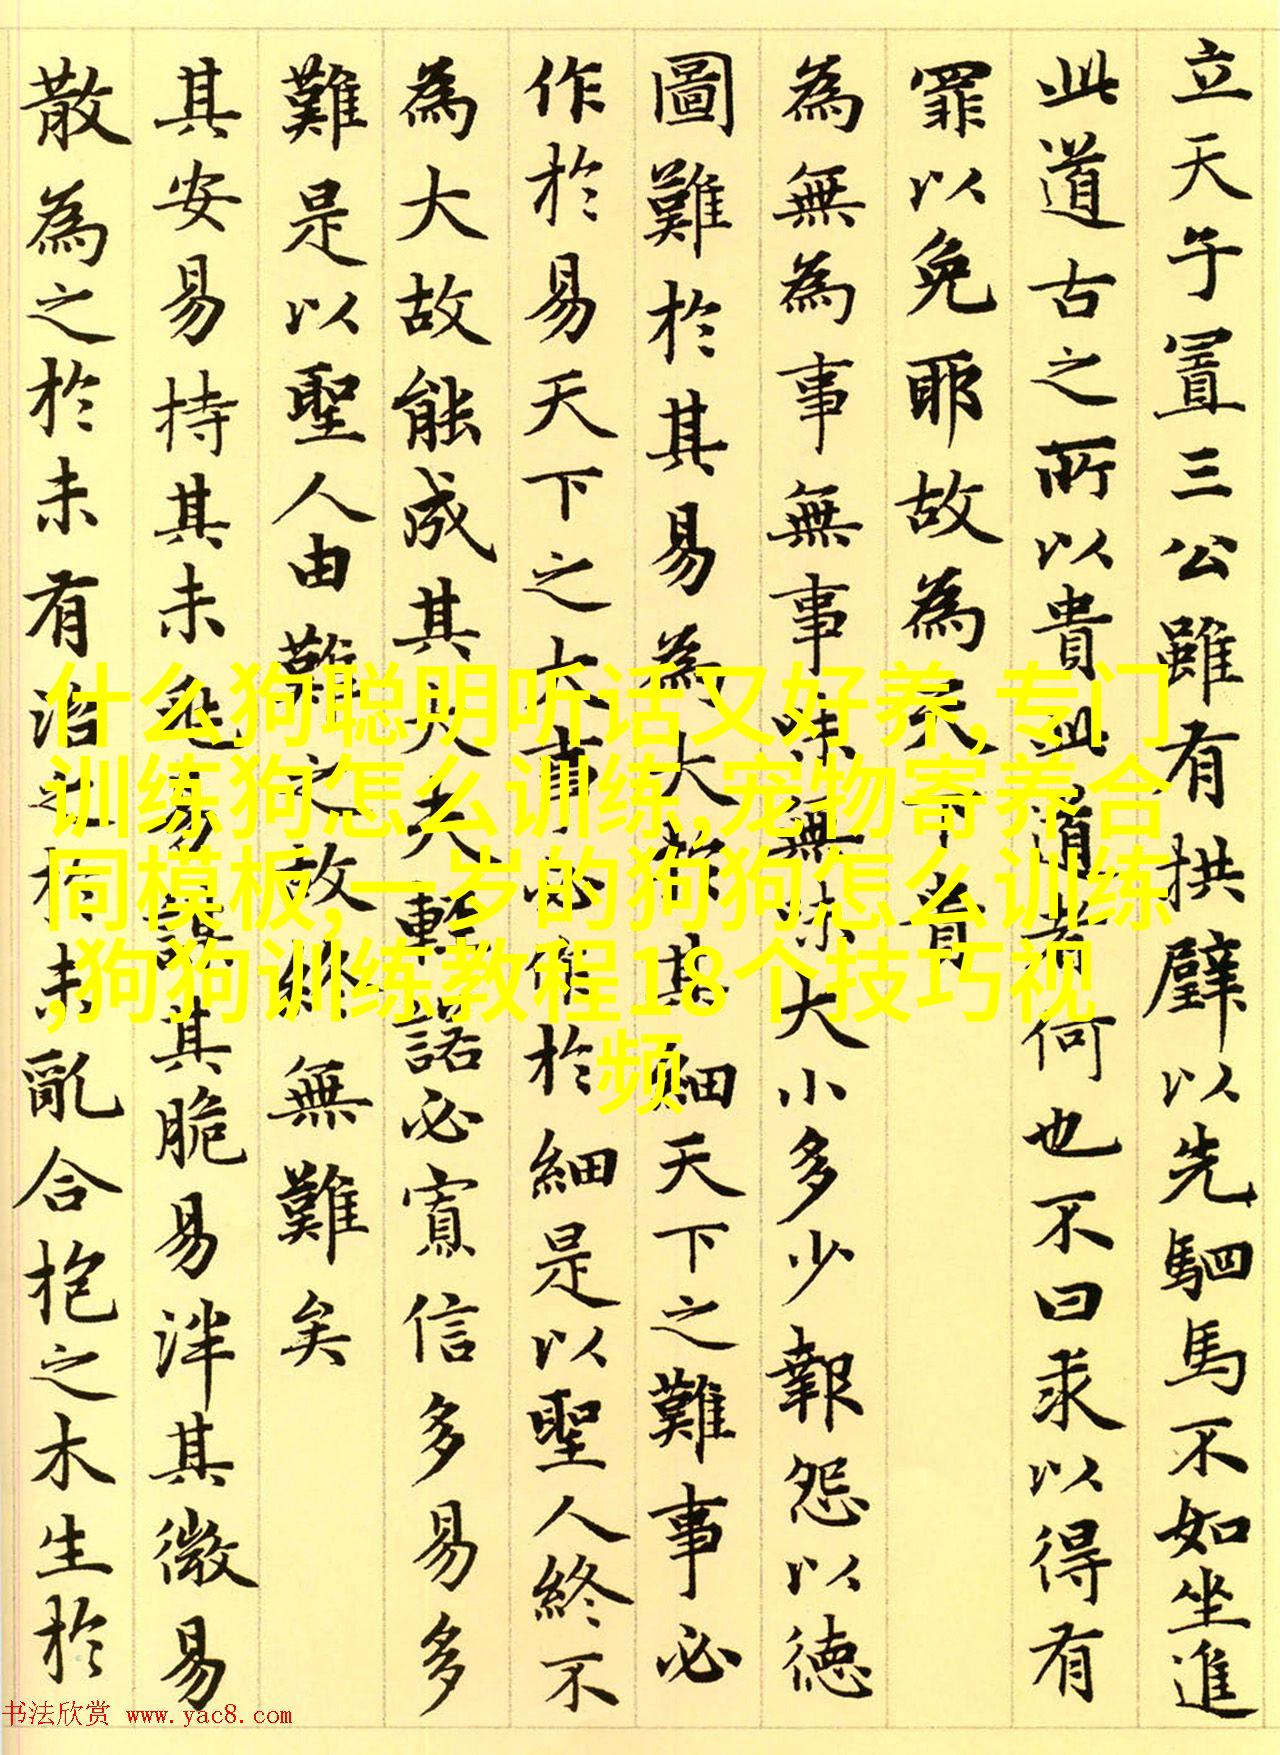 立天子置三公雖有拱璧以先駟馬不如坐進
此道古之所以貴此道者何也不曰求以得有
罪以免耶故為天下貴
為無為事無事味無味大小多少報怨以德
圖難於其易為大於其細天下之難事必
作於易天下之大事必作於細是以聖人終不
為大故能成其大夫輕諾必寡信多易多
難是以聖人由難之故終無難矣
其安易持其未兆易謀其脆易泮其微易
散為之於未有治之於未亂合抱之木生於
什么狗聪明听话又好养,专门
训练狗怎么训练,宠物寄养合
同模板,一岁的狗狗怎么训练
,狗狗训练教程18个技巧视
频
书法欣赏 www.yac8.com